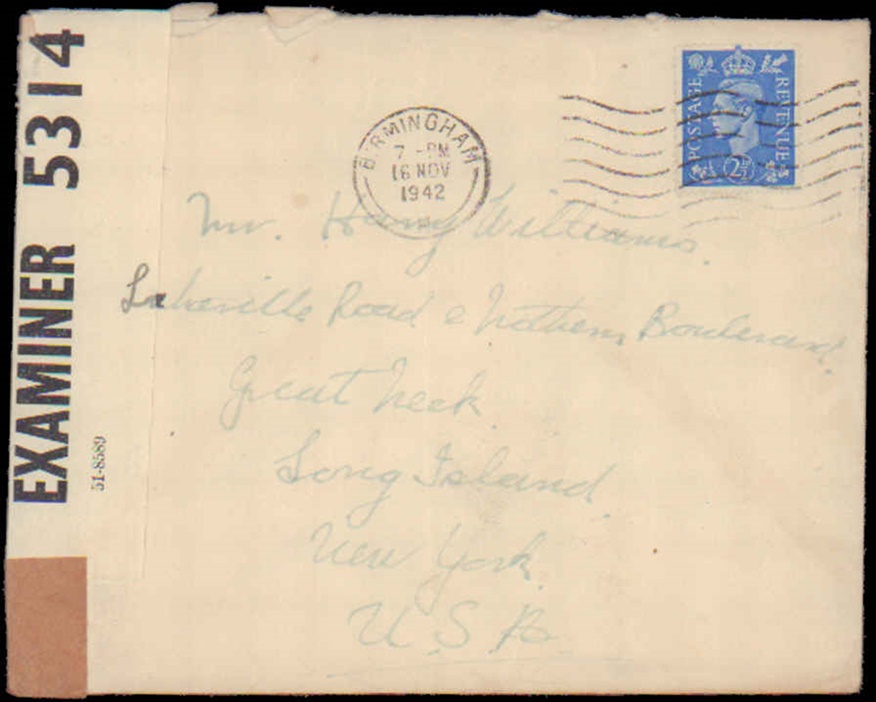 EXAMINER 5314
51-8589
BIRMINGHAM
7 - PM
16 NOV
1942
POSTAGE
REVENUE
2½D
Mr. Harry Williams.
Lakeville Road & Northern Boulevard.
Great Neck.
Long Island.
New York.
U.S.A.